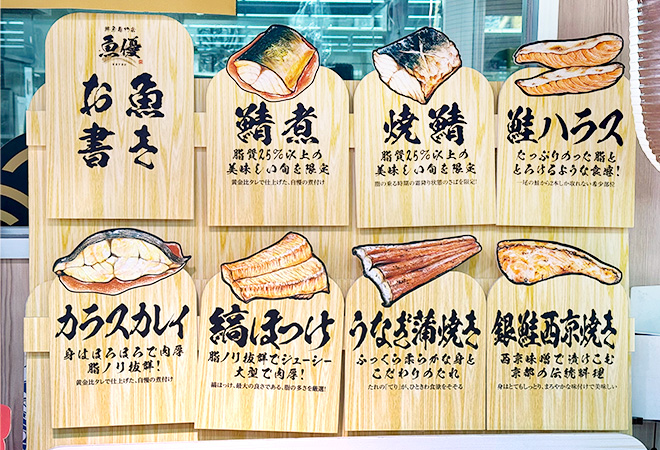 魚優
魚き
お書
鯖煮
脂質25%以上の
美味しい旬を限定
黄金比タレで仕上げた、自慢の煮付け
焼鯖
脂質25%以上の
美味しい旬を限定
脂の乗る時期の霜降り状態のさばを限定!
鮭ハラス
たっぷりのった脂と
とろけるような食感!
一尾の鮭から2本しか取れない希少部位
カラスカレイ
身はほろほろで肉厚
脂ノリ抜群!
黄金比タレで仕上げた、自慢の煮付け
縞ほっけ
脂ノリ抜群でジューシー
大型で肉厚!
縞ほっけ、最大の良さである、脂の多さを厳選!
うなぎ蒲焼き
ふっくら柔らかな身と
こだわりのたれ
たれの「てり」が、ひときわ食欲をそそる
銀鮭西京焼き
西京味噌で漬けこむ
京都の伝統料理
身はとてもしっとり、まろやかな味付けで美味しい